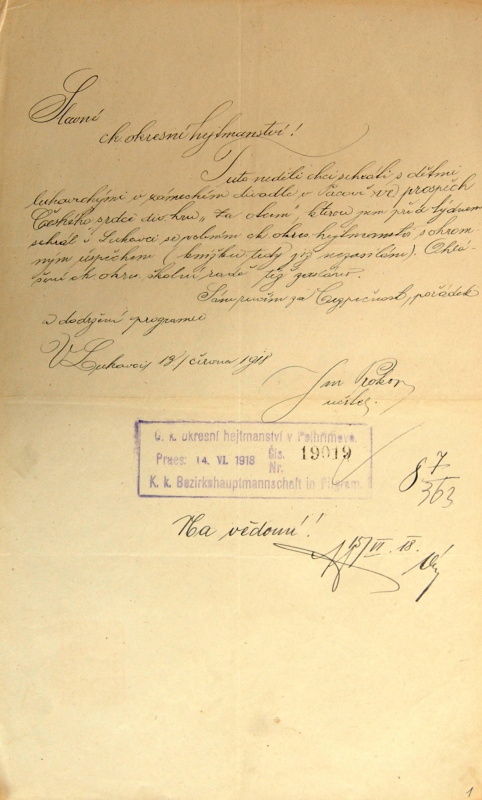 Slavné
ck okresní hejtmanství!
Tuto neděli chci sehráti s dětmi
lukaveckými v zámeckém divadle v Pacově ve prospěch
Českého srdce div. hru „Za otcem", kterou jsem před týdnem
sehrál v Lukavci se ck okres. hejtmanstí s ohrom-
ným úspěchem (knížku tedy již nezasílám). Ohlá-
šení ck okres. školní radě též zasláno.
Sám ručím za bezpečnost, pořádek
a dodržení programu
V Lukavci 13/ června 1918
Jan
učitel.
C. k. okresní hejtmanství v Pelhřimově.
Praes: 14. VI. 1918 Čís. Nr. 19019
K. k. Bezirkshauptmannschaft in Pilgram.
8 7/363
Na vědomí!
15/VI. 18.
1